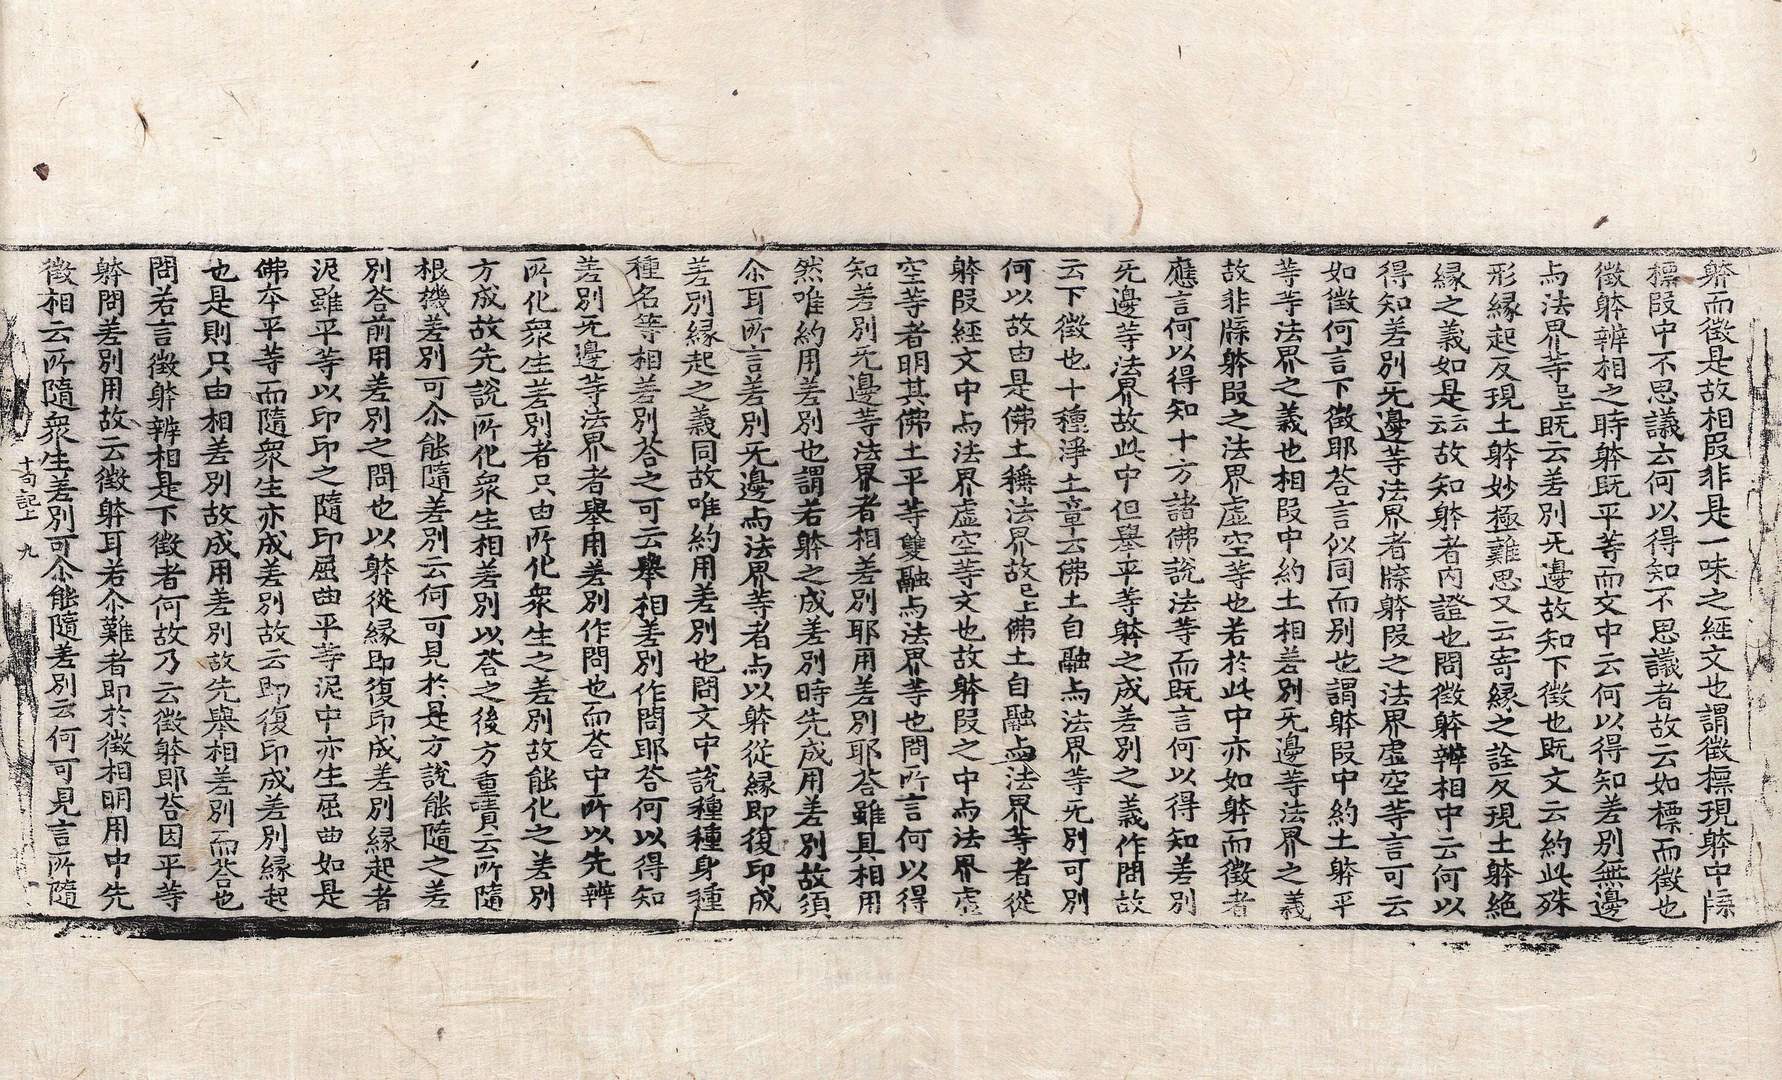 躰而徵是故相叚非是一味之經文也謂徵標現躰中牒
標叚中不思議云何以得知不思議者故云如標而徵也
徵躰辨相之時躰旣平等而文中云何以得知差別無邊
与法界等已上旣云差別无邊故知下徵也旣文云約此殊
形緣起反現土躰妙極難思又云寄緣之詮反現土躰絕
緣之義如是云云故知躰者內證也問徵躰辨相中云何以
得知差別无邊等法界者牒躰叚之法界虛空等言可云
如徵何言下徵耶荅言似同而別也謂躰叚中約土躰平
等等法界之義也相叚中約土相差別无邊等法界之義
故非牒躰叚之法界虛空等也若於此中亦如躰而徵者
應言何以得知十方諸佛說法等而旣言何以得知差別
无邊等法界故此中但舉平等躰之成差別之義作問故
云下徵也十種淨土章云佛土自融与法界等无別可別
何以故由是佛土稱法界故已上佛土自融与法界等者從
躰叚經文中与法界虛空等文也故躰叚之中与法界虛
空等者明其佛土平等雙融与法界等也問所言何以得
知差別无邊等法界者相差別耶用差別耶荅雖具相用
然唯約用差別也謂若躰之成差別時先成用差別故須
尒耳所言差別无邊与法界等者与以躰從緣即復印成
差別緣起之義同故唯約用差別也問文中說種種身種
種名等相差別荅之可云舉相差別作問耶荅何以得知
差別无邊等法界者舉用差別作問也而荅中所以先辨
所化衆生差別者只由所化衆生之差別故能化之差別
方成故先說所化衆生相差別以荅之後方重責云所隨
根機差別可尒能隨差別云何可見於是方說能隨之差
別荅前用差別之問也以躰從緣即復印成差別緣起者
泥雖平等以印印之隨印屈曲平等泥中亦生屈曲如是
佛本平等而隨衆生亦成差別故云即復印成差別緣起
也是則只由相差別故成用差別故先舉相差別而荅也
問若言徵躰辨相是下徵者何故乃云徵躰耶荅因平等
躰問差別用故云徵躰耳若尒難者即於徵相明用中先
徵相云所隨衆生差別可尒能隨差別云何可見言所隨
十句記上 九